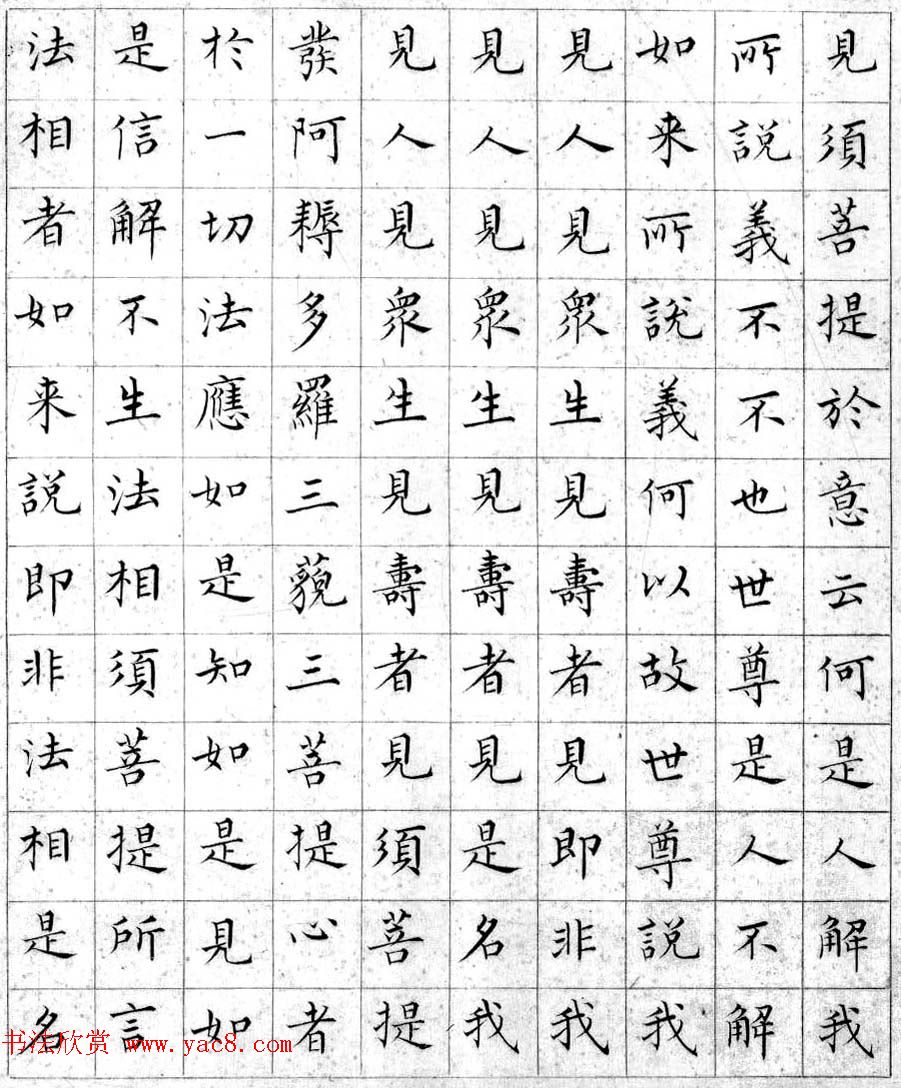 見須菩提於意云何是人解我
所說義不不也世尊是人不解
如来所說義何以故世尊說我
見人見衆生見壽者見即非我
見人見衆生見壽者見是名我
見人見衆生見壽者見須菩提
發阿耨多羅三藐三菩提心者
於一切法應如是知如是見如
是信解不生法相須菩提所言
法相者如来說即非法相是名
书法欣赏 www.yac8.com